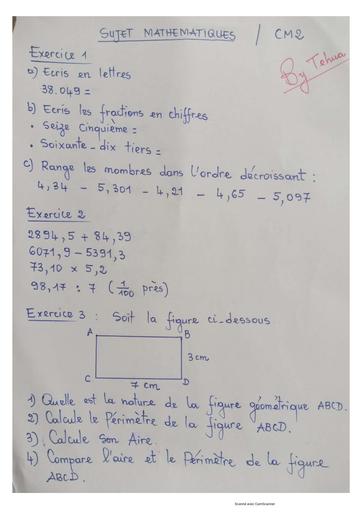 SUJET MATHEMATIQUES / CM2
By Tehua
Exercice 1
a) Ecris en lettres
38.049 =
b) Ecris les fractions en chiffres
• Seize cinquième =
• Soixante-dix tiers =
c) Range les nombres dans l'ordre décroissant :
4,34 - 5,301 - 4,21 - 4,65 - 5,097
Exercice 2
2894,5 + 84,39
6071,9 - 5391,3
73,10 × 5,2
98,17 : 7 (1/100 près)
Exercice 3 : Soit la figure ci-dessous
A B
3 cm
C D
7 cm
1) Quelle est la nature de la figure géométrique ABCD.
2) Calcule le Périmètre de la figure ABCD.
3) Calcule son Aire.
4) Compare l'aire et le Périmètre de la figure
ABCD.
Scanné avec CamScanner